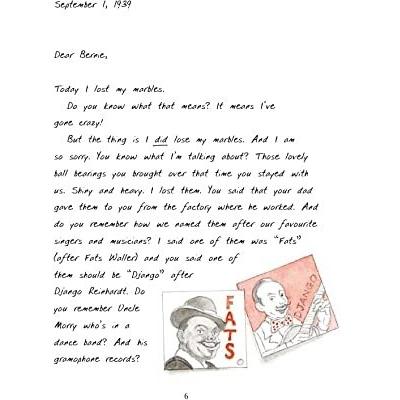 September 1, 1939
Dear Bernie,
Today I lost my marbles.
Do you know what that means? It means I've
gone crazy!
But the thing is I did lose my marbles. And I am
so sorry. You know what I'm talking about? Those lovely
ball bearings you brought over that time you stayed with
us. Shiny and heavy. I lost them. You said that your dad
gave them to you from the factory where he worked. And
do you remember how we named them after our favourite
singers and musicians? I said one of them was "Fats"
(after Fats Waller) and you said one of
them should be "Django" after
Django Reinhardt. Do
you remember Uncle
Morry who's in a
dance band? And his
gramophone records?
FATS.
DJANGO
6